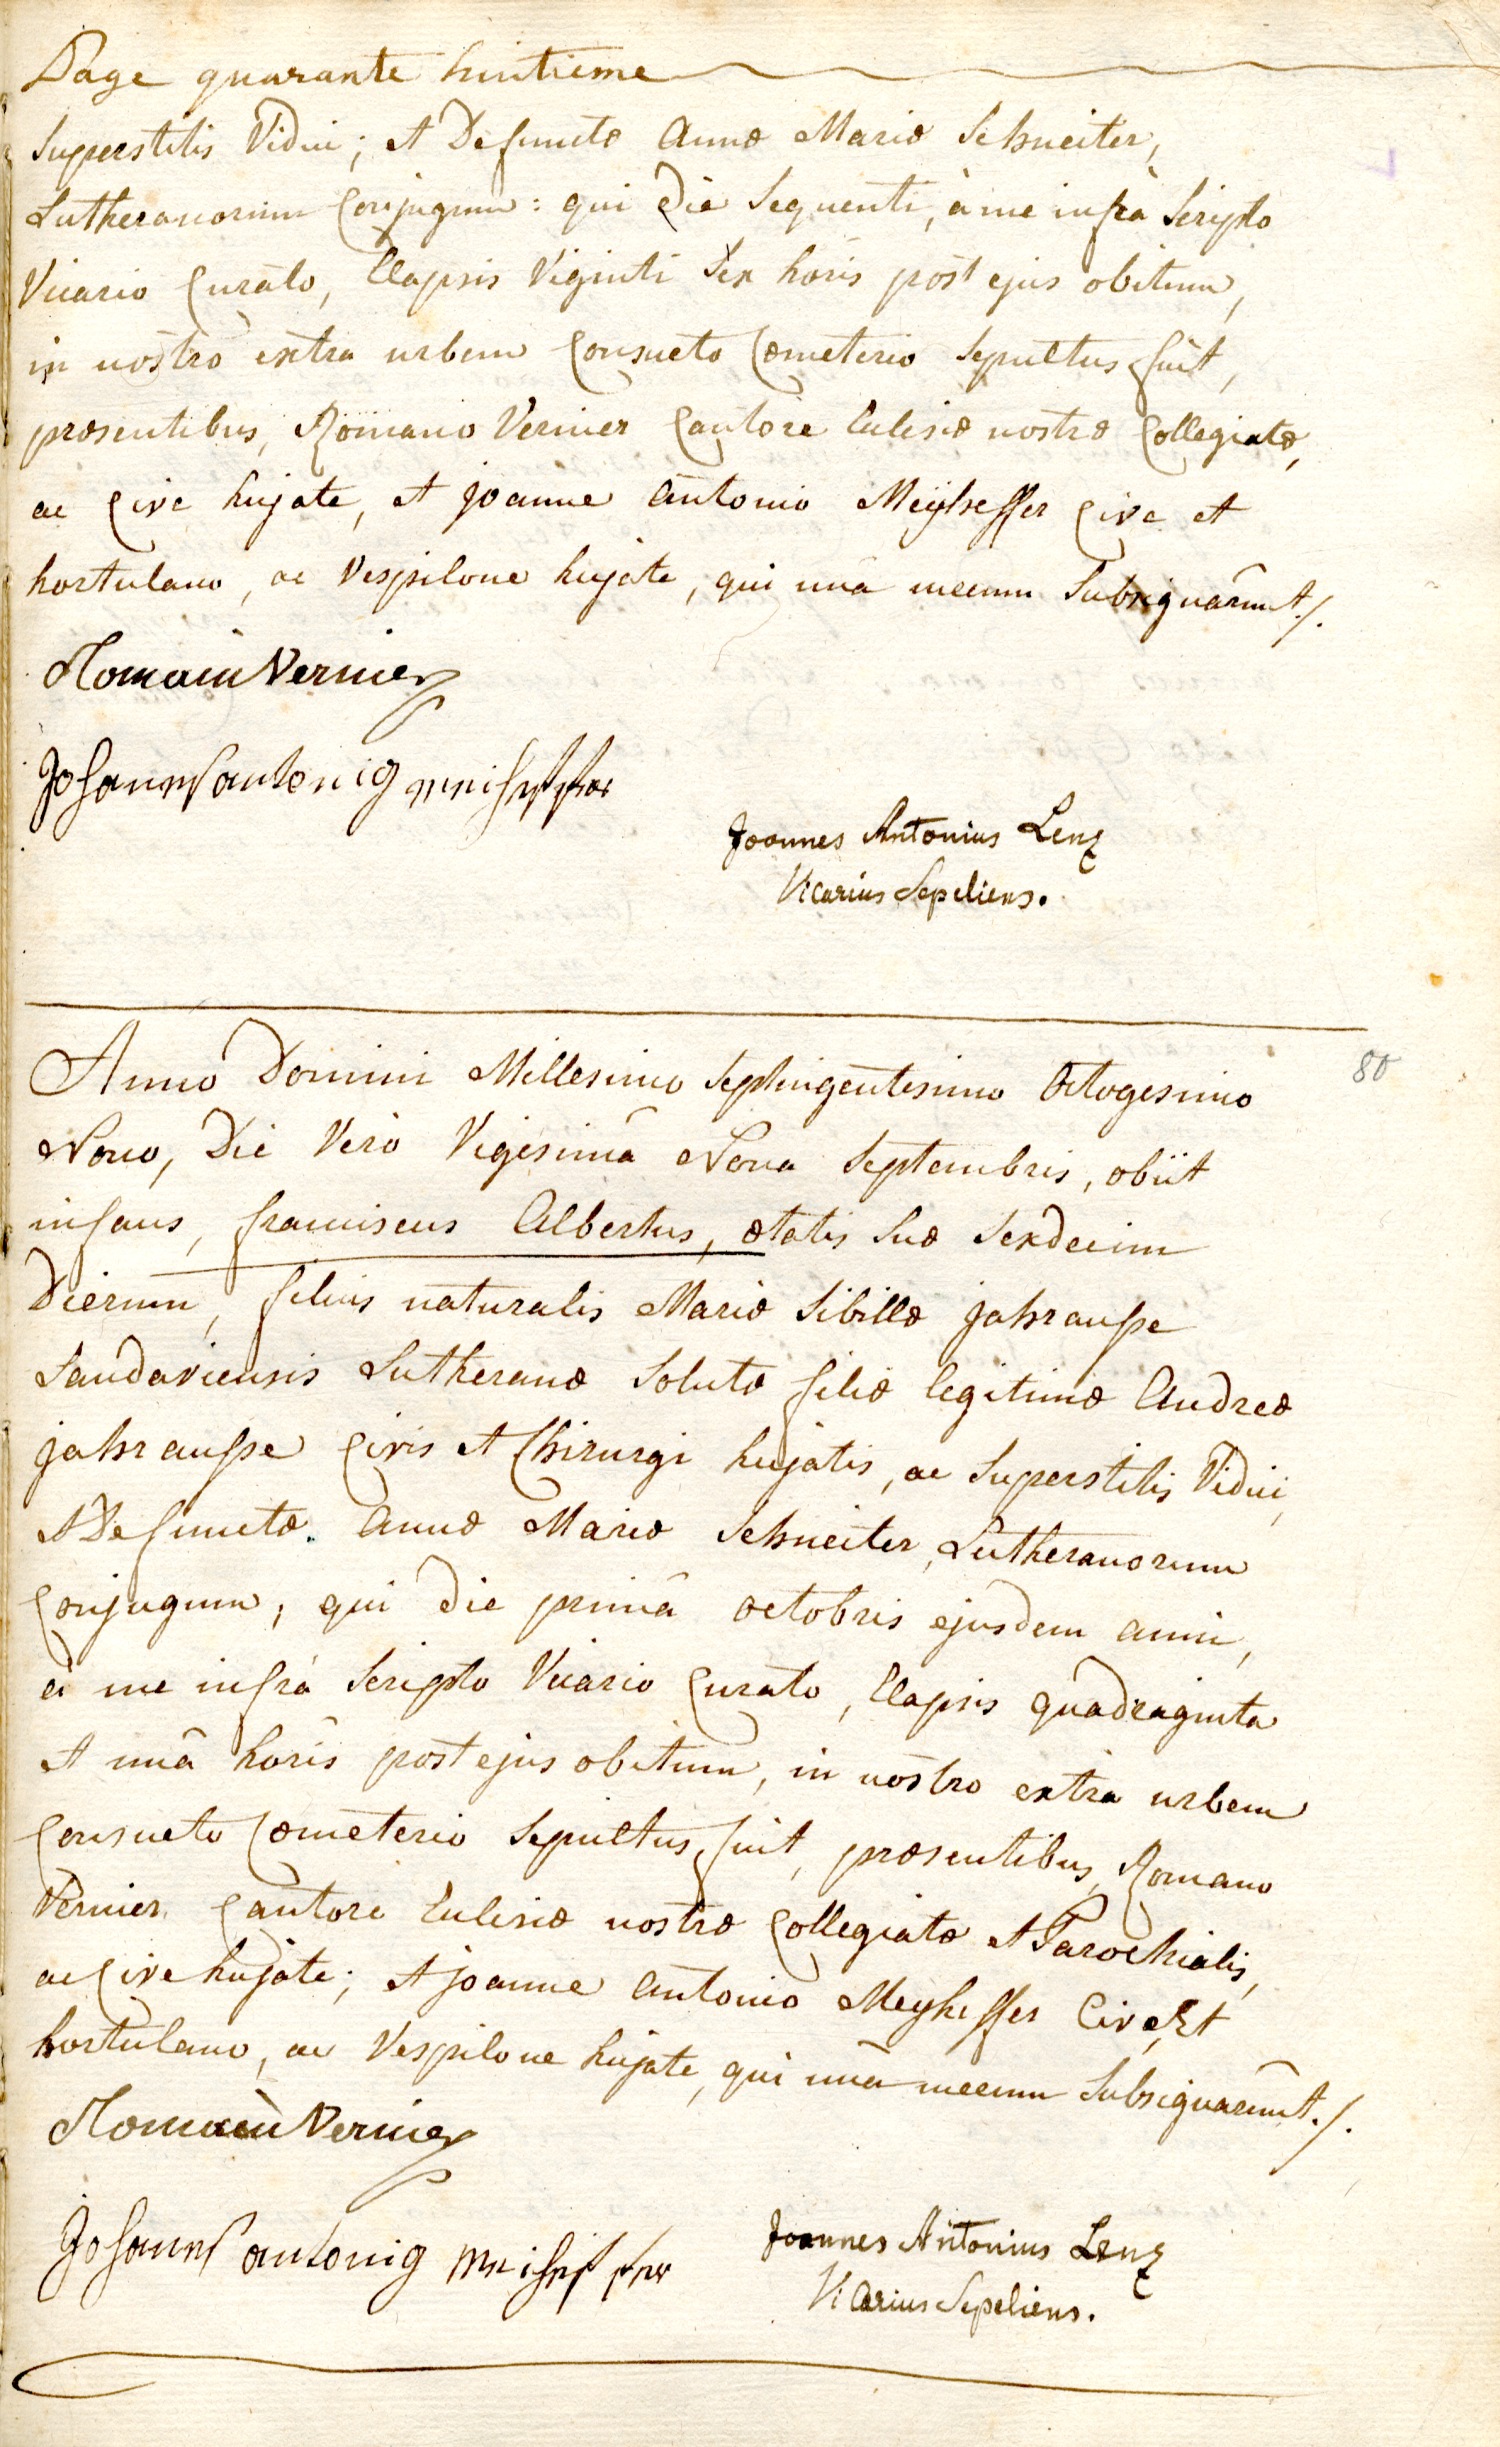 Page quarante huitieme
Superstitis Vidui; et Defunctæ Annæ Mariæ Schneiter,
Lutheranorum Conjugum: qui Die Sequenti, à me infrà Scripto
Vicario Curato, Elapsis Viginti Sex horis post ejus obitum,
in nostro extra urbem Consueto Cœmeterio Sepultus fuit,
præsentibus, Romano Vernier Cantore Ecclesiæ nostræ Collegiatæ,
ac Cive hujate, et joanne Antonio Meÿheffer Cive et
hortulano, ac Vespilone hujate, qui unâ mecum Subsignârunt./.
Romain Vernier
Johannes antonig meiheffer
Joannes Antonius Lenz
Vicarius Sepeliens.
80
Anno Domini Millesimo Septingentesimo Octogesimo
Nono, Die Vero Vigesimâ Nona Septembris, obiit
infans, franciscus Albertus, ætatis Suæ Sexdecim
Dierum, filius naturalis Mariæ Sibillæ jahrausse
Landaviensis Lutheranæ Solutæ filiæ legitimæ Andreæ
jahrausse Civis et Chirurgi hujatis, ac Superstitis Vidui,
et Defunctæ. Annæ Mariæ Schneiter, Lutheranorum
Conjugum, qui Die primâ octobris ejusdem anni,
à me infrà Scripto Vicario Curato, Elapsis quadraginta
et unâ horis post ejus obitum, in nostro extra urbem
Consueto Cœmeterio Sepultus fuit, præsentibus, Romano
Vernier Cantore Ecclesiæ nostræ Collegiatæ et Parochialis,
ac Cive hujate; et joanne Antonio Meyheffer Cive, Et
hortulano, ac Vespilone hujate, qui unâ mecum Subsignarunt./.
Romain Vernier
Johannes antonig meiheffer
Joannes Antonius Lenz
Vicarius Sepeliens.